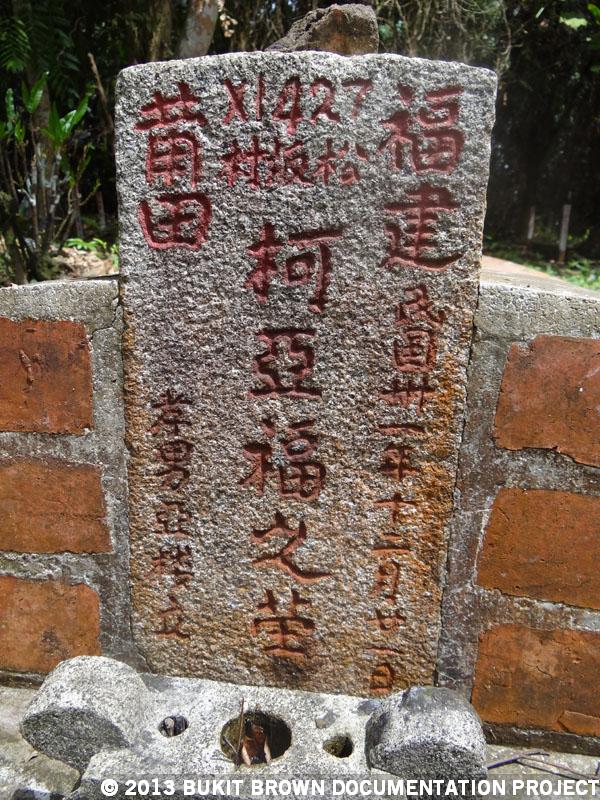 X1427
松坂村
福建
民国卅一年十二月廿一日
柯亞福之茔
莆田
孝男亞立
© 2013 BUKIT BROWN DOCUMENTATION PROJECT